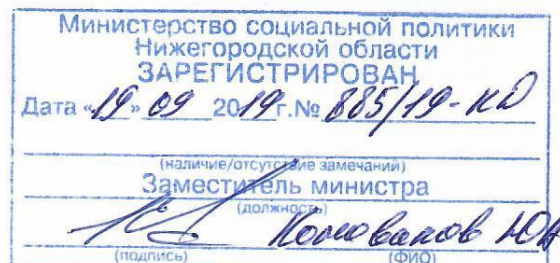 Министерство социальной политики
Нижегородской области
ЗАРЕГИСТРИРОВАН
Дата «19» 09 2019 г. № 885/19-КД
(наличие/отсутствие замечаний)
Заместитель министра
(должность)
(подпись) (ФИО)